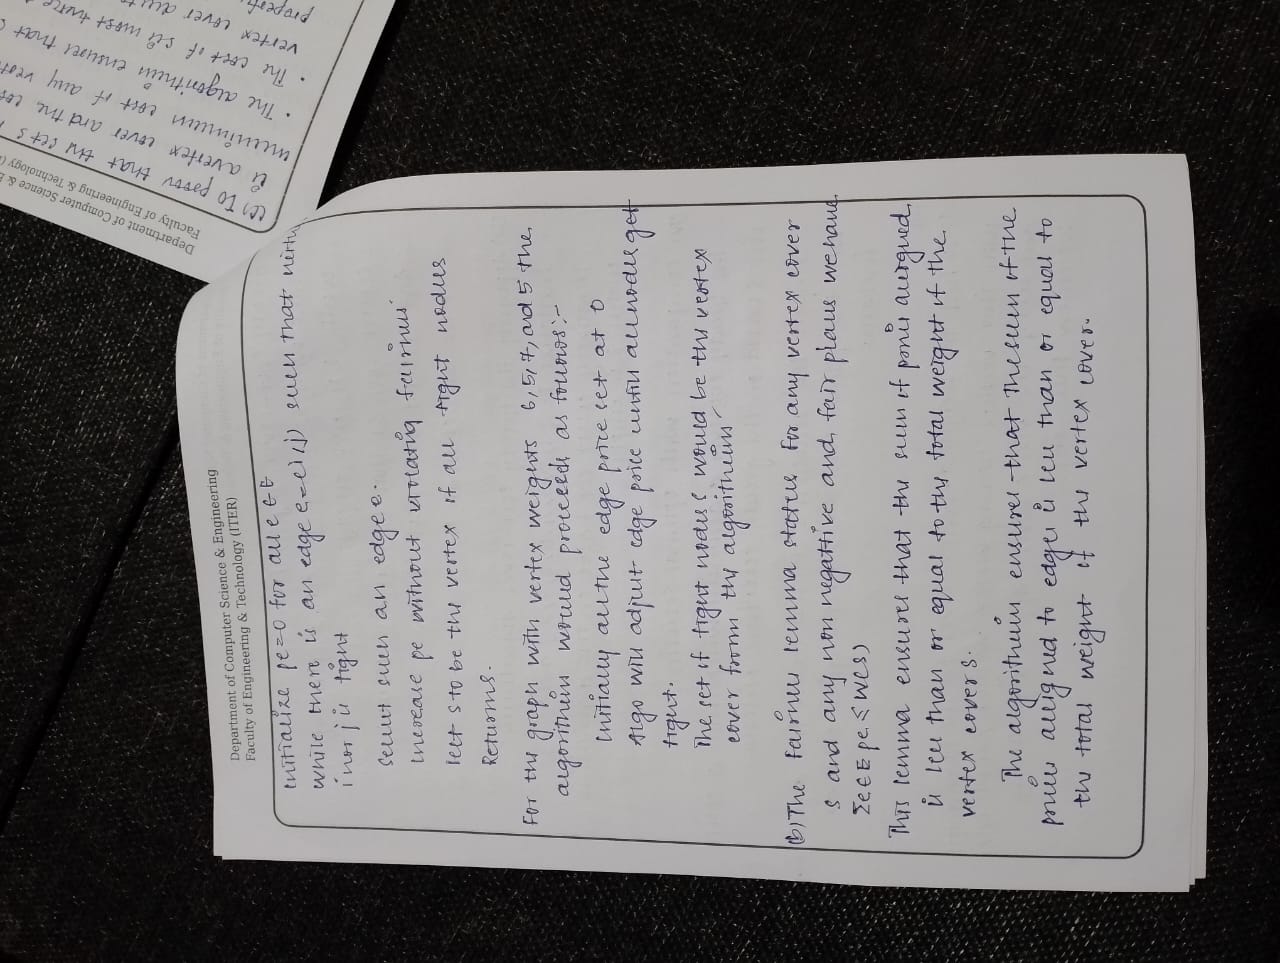 Department of Computer Science & Engineering
Faculty of Engineering & Technology (ITER)
initialize pe=0 for all e ∈ E
while there is an edge e=(i,j) such that
i nor j is tight
select such an edge e.
increase pe without violating fairness
let s to be the vertex of all tight nodes
Returns.
For the graph with vertex weights 6,5,7, and 5 the
algorithm would proceeds as follows:-
Initially all the edge price set at 0
Algo will adjust edge price until all nodes get
tight.
The set of tight nodes would be the vertex
cover from the algorithm
(b) The fairness lemma states for any vertex cover
S and any non negative and fair places we have
Σe∈E pe ≤ w(s)
This lemma ensures that the sum of
is less than or equal to the total weight of the
vertex covers.
The algorithm ensures that the sum of the
prices assigned to edge is less than or equal to
the total weight of the vertex cover.
Department of Computer Science &
Faculty of Engineering & Technology
(c) To prove that the set s
is a vertex cover and the
minimum cost of any
• The algorithm ensures that
• The cost of s is most
vertex cover